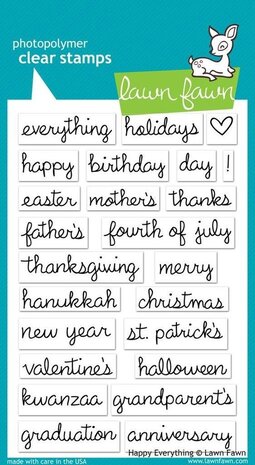 photopolymer
clear stamps
lawn fawn
everything holidays
happy birthday day !
easter mother's thanks
father's fourth of july
thanksgiving merry
hanukkah christmas
new year st. patrick's
valentine's halloween
kwanzaa grandparent's
graduation anniversary
Happy Everything © Lawn Fawn
made with care in the USA
www.lawnfawn.com